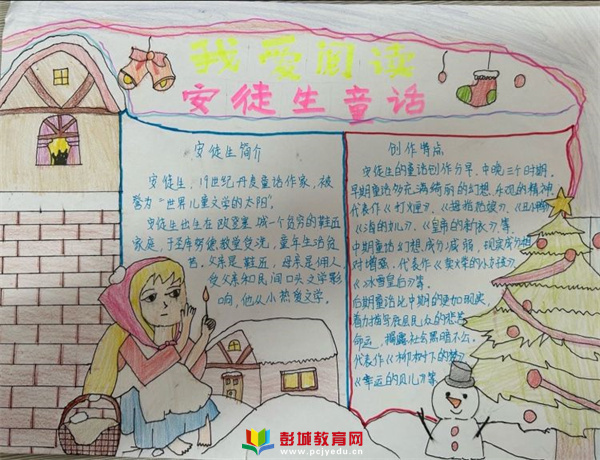 我爱阅读
安徒生童话
安徒生简介
安徒生,19世纪丹麦童话作家,被
誉为“世界儿童文学的太阳”。
安徒生出生在欧登塞城一个贫穷的鞋匠
家庭,童年生活贫
苦。父亲是鞋匠,母亲是佣人
受父亲和民间口头文学影
响,他从小热爱文学。
创作特点
安徒生的童话创作分早、中晚三个时期。
早期童话多充满绮丽的幻想、乐观的精神
代表作《打火匣》、《拇指姑娘》、《丑小鸭》
《海的女儿》、《皇帝的新衣》等。
中期童话幻想成分减弱,现实成分相
对增强。代表作《卖火柴的小女孩》
《冰雪皇后》等。
后期童话比中期的更加现实,
着力描写底层民众的悲惨
命运,揭露社会黑暗不公。
代表作《柳树下的梦》
《幸运的贝儿》等
彭城教育网
www.pcjyedu.cn